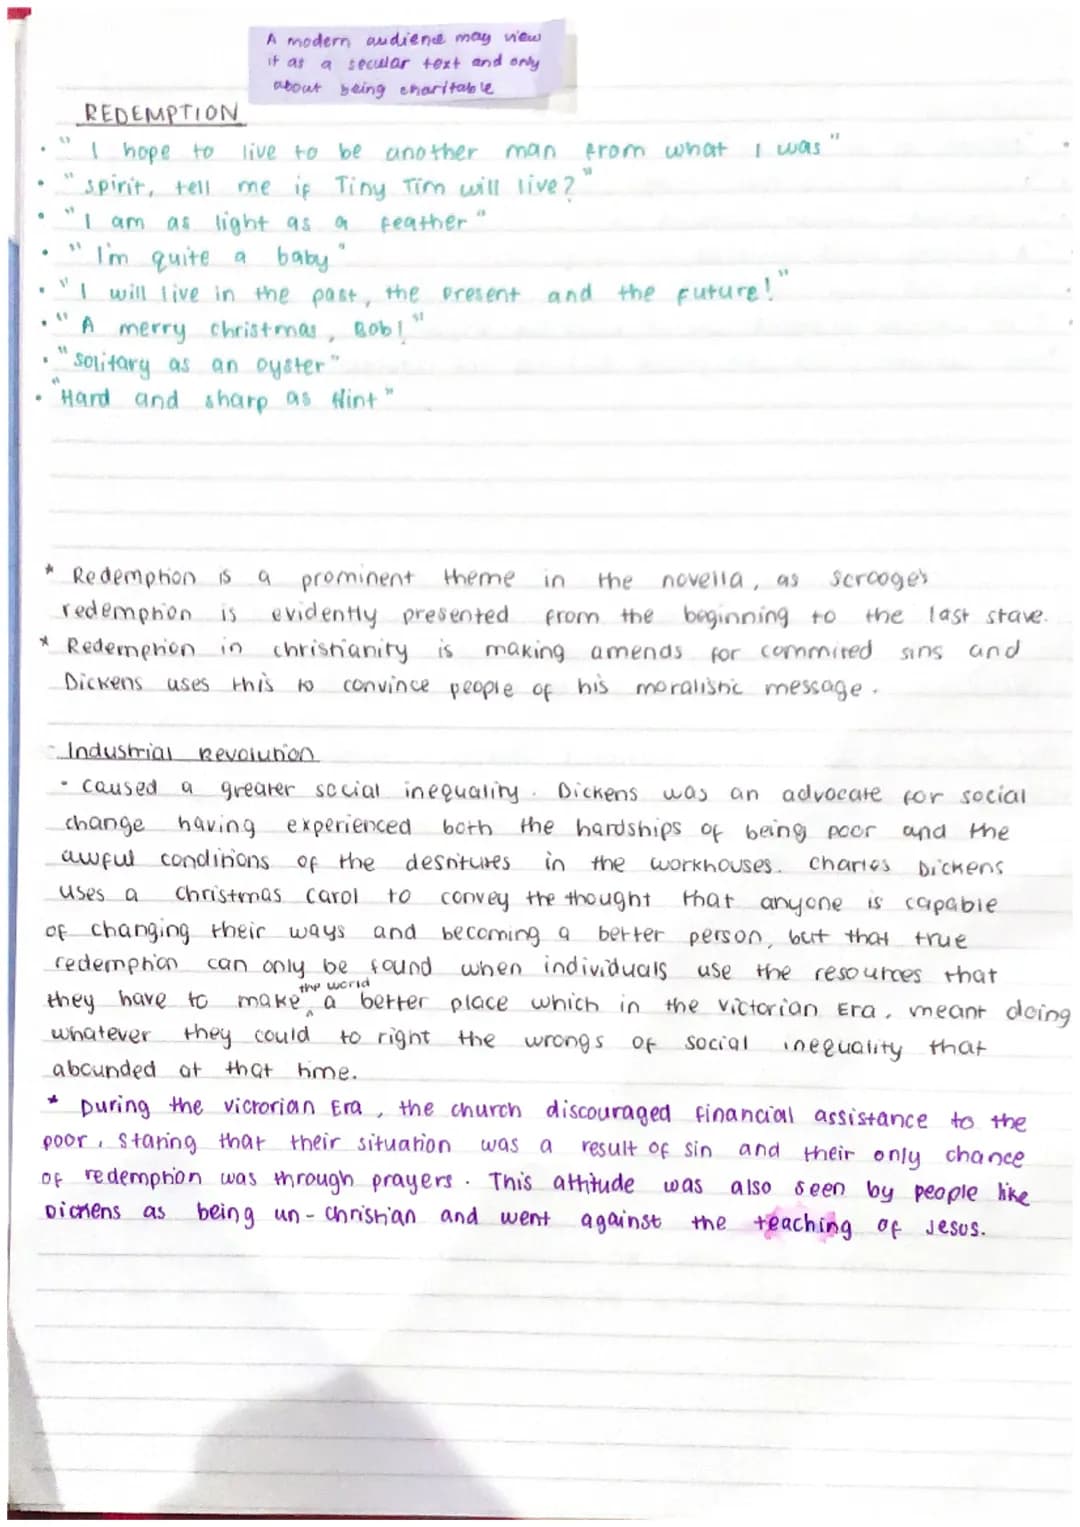 A modern audience may view
it as a secular text and only
about being charitable
REDEMPTION
• "I hope to live to be another man from what I was"
• "Spirit, tell me if Tiny Tim will live?"
• "I am as light as a feather"
• "I'm quite a baby"
• "I will live in the past, the present and the future!"
• "A merry christmas, Bob!"
• "Solitary as an oyster"
• "Hard and sharp as flint"
* Redemption is a prominent theme in the novella, as Scrooge's
redemption is evidently presented from the beginning to the last stave.
* Redemption in christianity is making amends for commited sins and
Dickens uses this to convince people of his moralistic message.
- Industrial Revolution
- caused a greater social inequality. Dickens was an advocate for social
change having experienced both the hardships of being poor and the
awful conditions of the destitutes in the workhouses. Charles Dickens
uses a Christmas Carol to convey the thought that anyone is capable
of changing their ways and becoming a better person, but that true
redemption can only be found when individuals use the resources that
they have to make the world a better place which in the Victorian Era, meant doing
whatever they could to right the wrongs of social inequality that
abounded at that time.
* During the Victorian Era, the church discouraged financial assistance to the
poor, stating that their situation was a result of sin and their only chance
of redemption was through prayers. This attitude was also seen by people like
Dickens as being un-Christian and went against the teaching of Jesus.